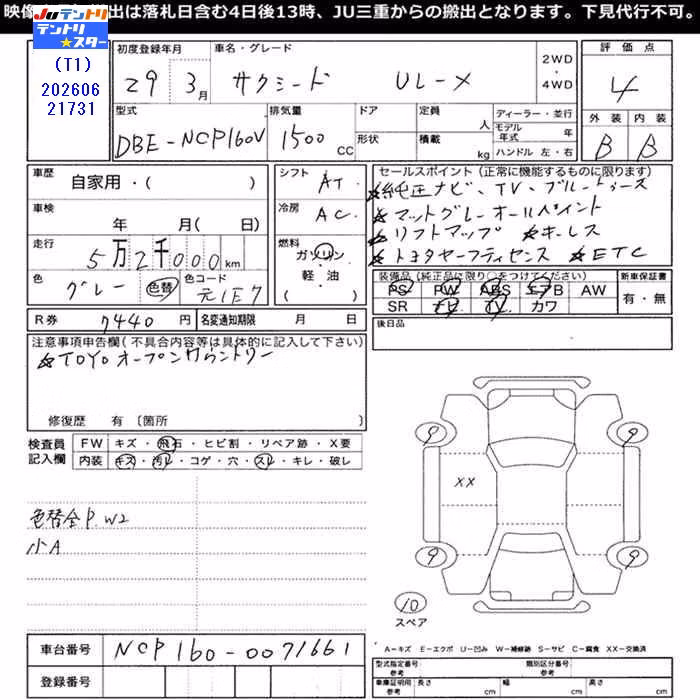 映像 出は落札日含む4日後13時、JU三重からの搬出となります。下見代行不可。
JUテントリ
テントリ★スター
(T1)
202606
21731
初度登録年月
29 3月
車名・グレード
サクシード ULーメ
2WD
・
4WD
評価点
4
外装 内装
B B
型式
DBE-NCP160V
排気量
1500 CC
ドア
形状
定員 人
積載 kg
ディーラー・並行
モデル年式 年
ハンドル 左・右
車歴
自家用・( )
車検
年 月( 日)
走行
5万2千000km
色
グレー
色替
色コード
元1E7
シフト
AT
冷房
AC
燃料
ガソリン
軽・油
( )
セールスポイント(正常に機能するものに限ります)
★純正ナビ、TV、ブルートゥース
★マットグレーオールペイント
★リフトアップ ★キーレス
★トヨタセーフティセンス ★ETC
装備品(純正品に限り○をつけてください)
PS PW ABS エアB AW
SR ナビ TV カワ
新車保証書
有・無
R券 7440円
名変通知期限 月 日
後日品
注意事項申告欄(不具合内容等は具体的に記入して下さい)
★TOYOオープンカントリー
修復歴 有 〔箇所
検査員
記入欄
FW キズ・飛石・ヒビ割・リペア跡・X要
内装 キズ・汚レ・コゲ・穴・スレ・キレ・破レ
色替全P W2
小A
9 9
XX
9 9
10
スペア
A-キズ E-エクボ U-凹み W-補修跡 S-サビ C-腐食 XX-交換済
車台番号
NCP160-0071661
登録番号
型式指定番号
参考
類別区分番号
参考
車庫証明用
参考
長さ cm 幅 cm 高さ cm